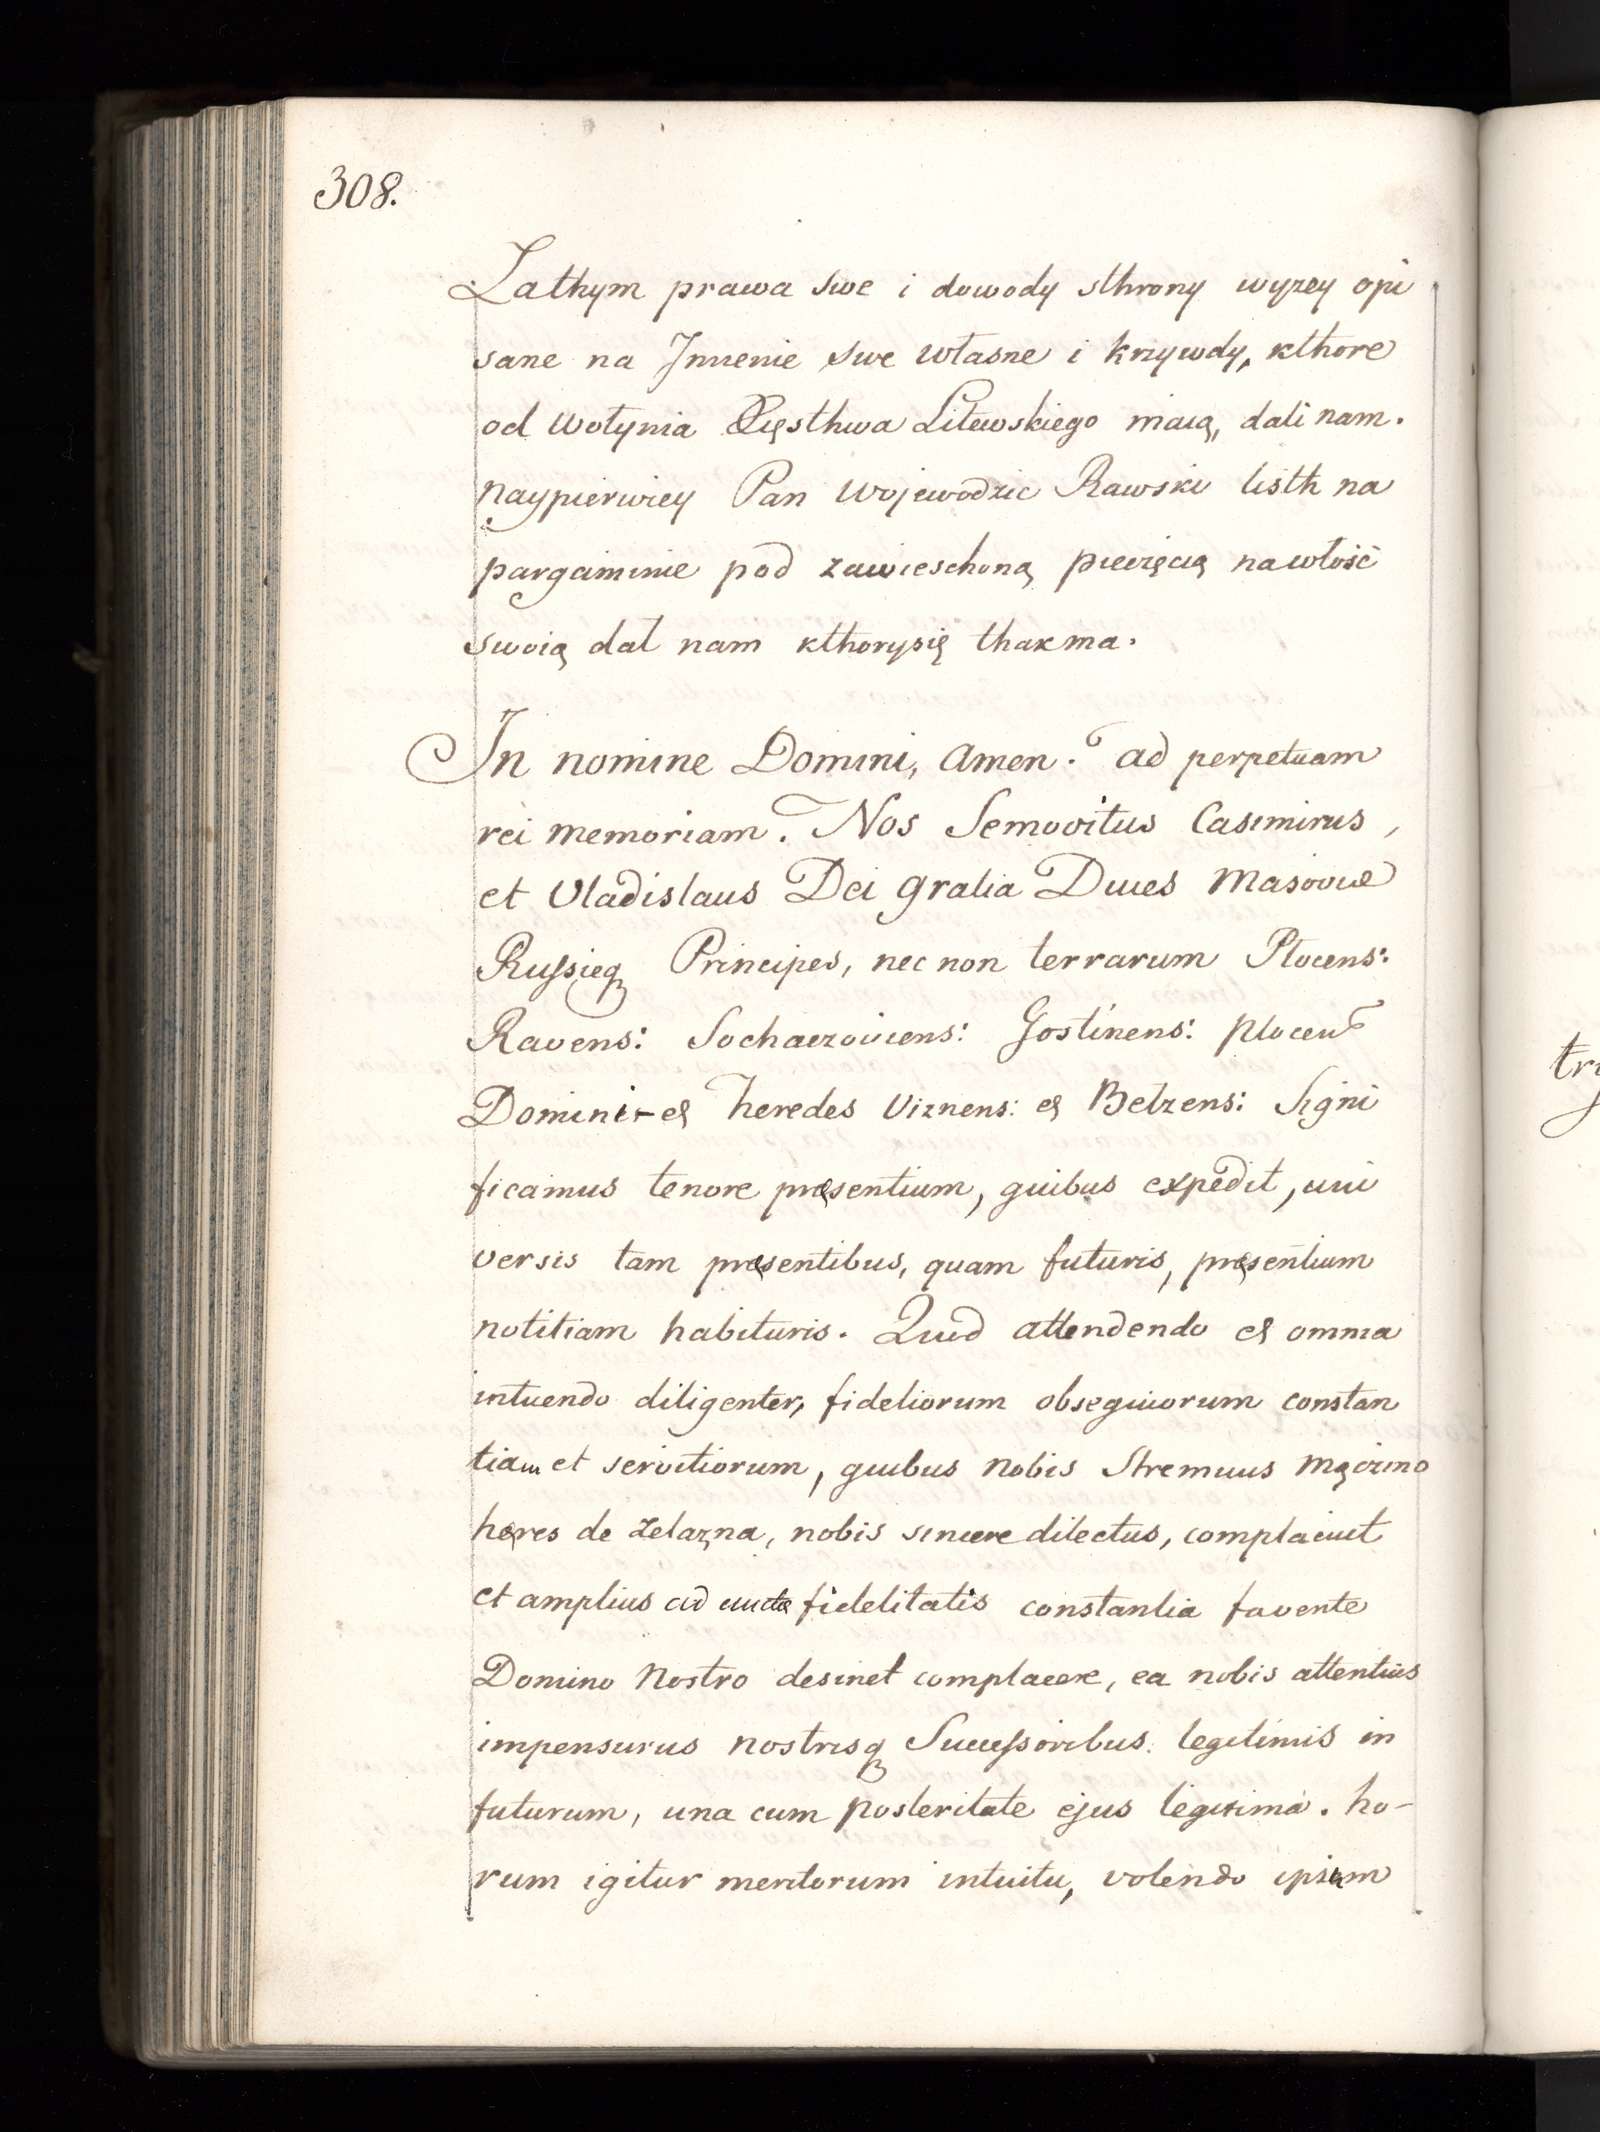 308.
Zathym prawa swe i dowody sthrony wyzey opi
sane na Jmienie swe własne i krzywdy, kthore
od Wołynia Xięsthwa Litewskiego maią, dali nam.
naypierwiey Pan Wojewodzic Rawski listh na
pargaminie pod zawieschoną pieczęcią na włość
swoią dał nam kthorysię thak ma.
In nomine Domini, Amen. ad perpetuam
rei memoriam. Nos Semovitus Casimirus,
et Vladislaus Dei gratia Duces Masoviæ
Russieq Principes, nec non terrarum Plocens:
Ravens: Sochaczoviens: Gostinens: Plocens
Domini et heredes Viznens: et Belzens: Signi
ficamus tenore præsentium, quibus expedit, uni
versis tam præsentibus, quam futuris, præsentium
notitiam habituris. Quod attendendo et omnia
intuendo diligenter, fideliorum obsequiorum constan
tiam et servitiorum, quibus nobis Strenuus
heres de Zelazna, nobis sincere dilectus, complacuit
et amplius fidelitatis constantia favente
Domino Nostro desinet complacere, ea nobis attentius
impensurus nostrisq Successoribus legitimis in
futurum, una cum posteritate ejus legitima. ho-
rum igitur meritorum intuitu, volendo ipsum
try